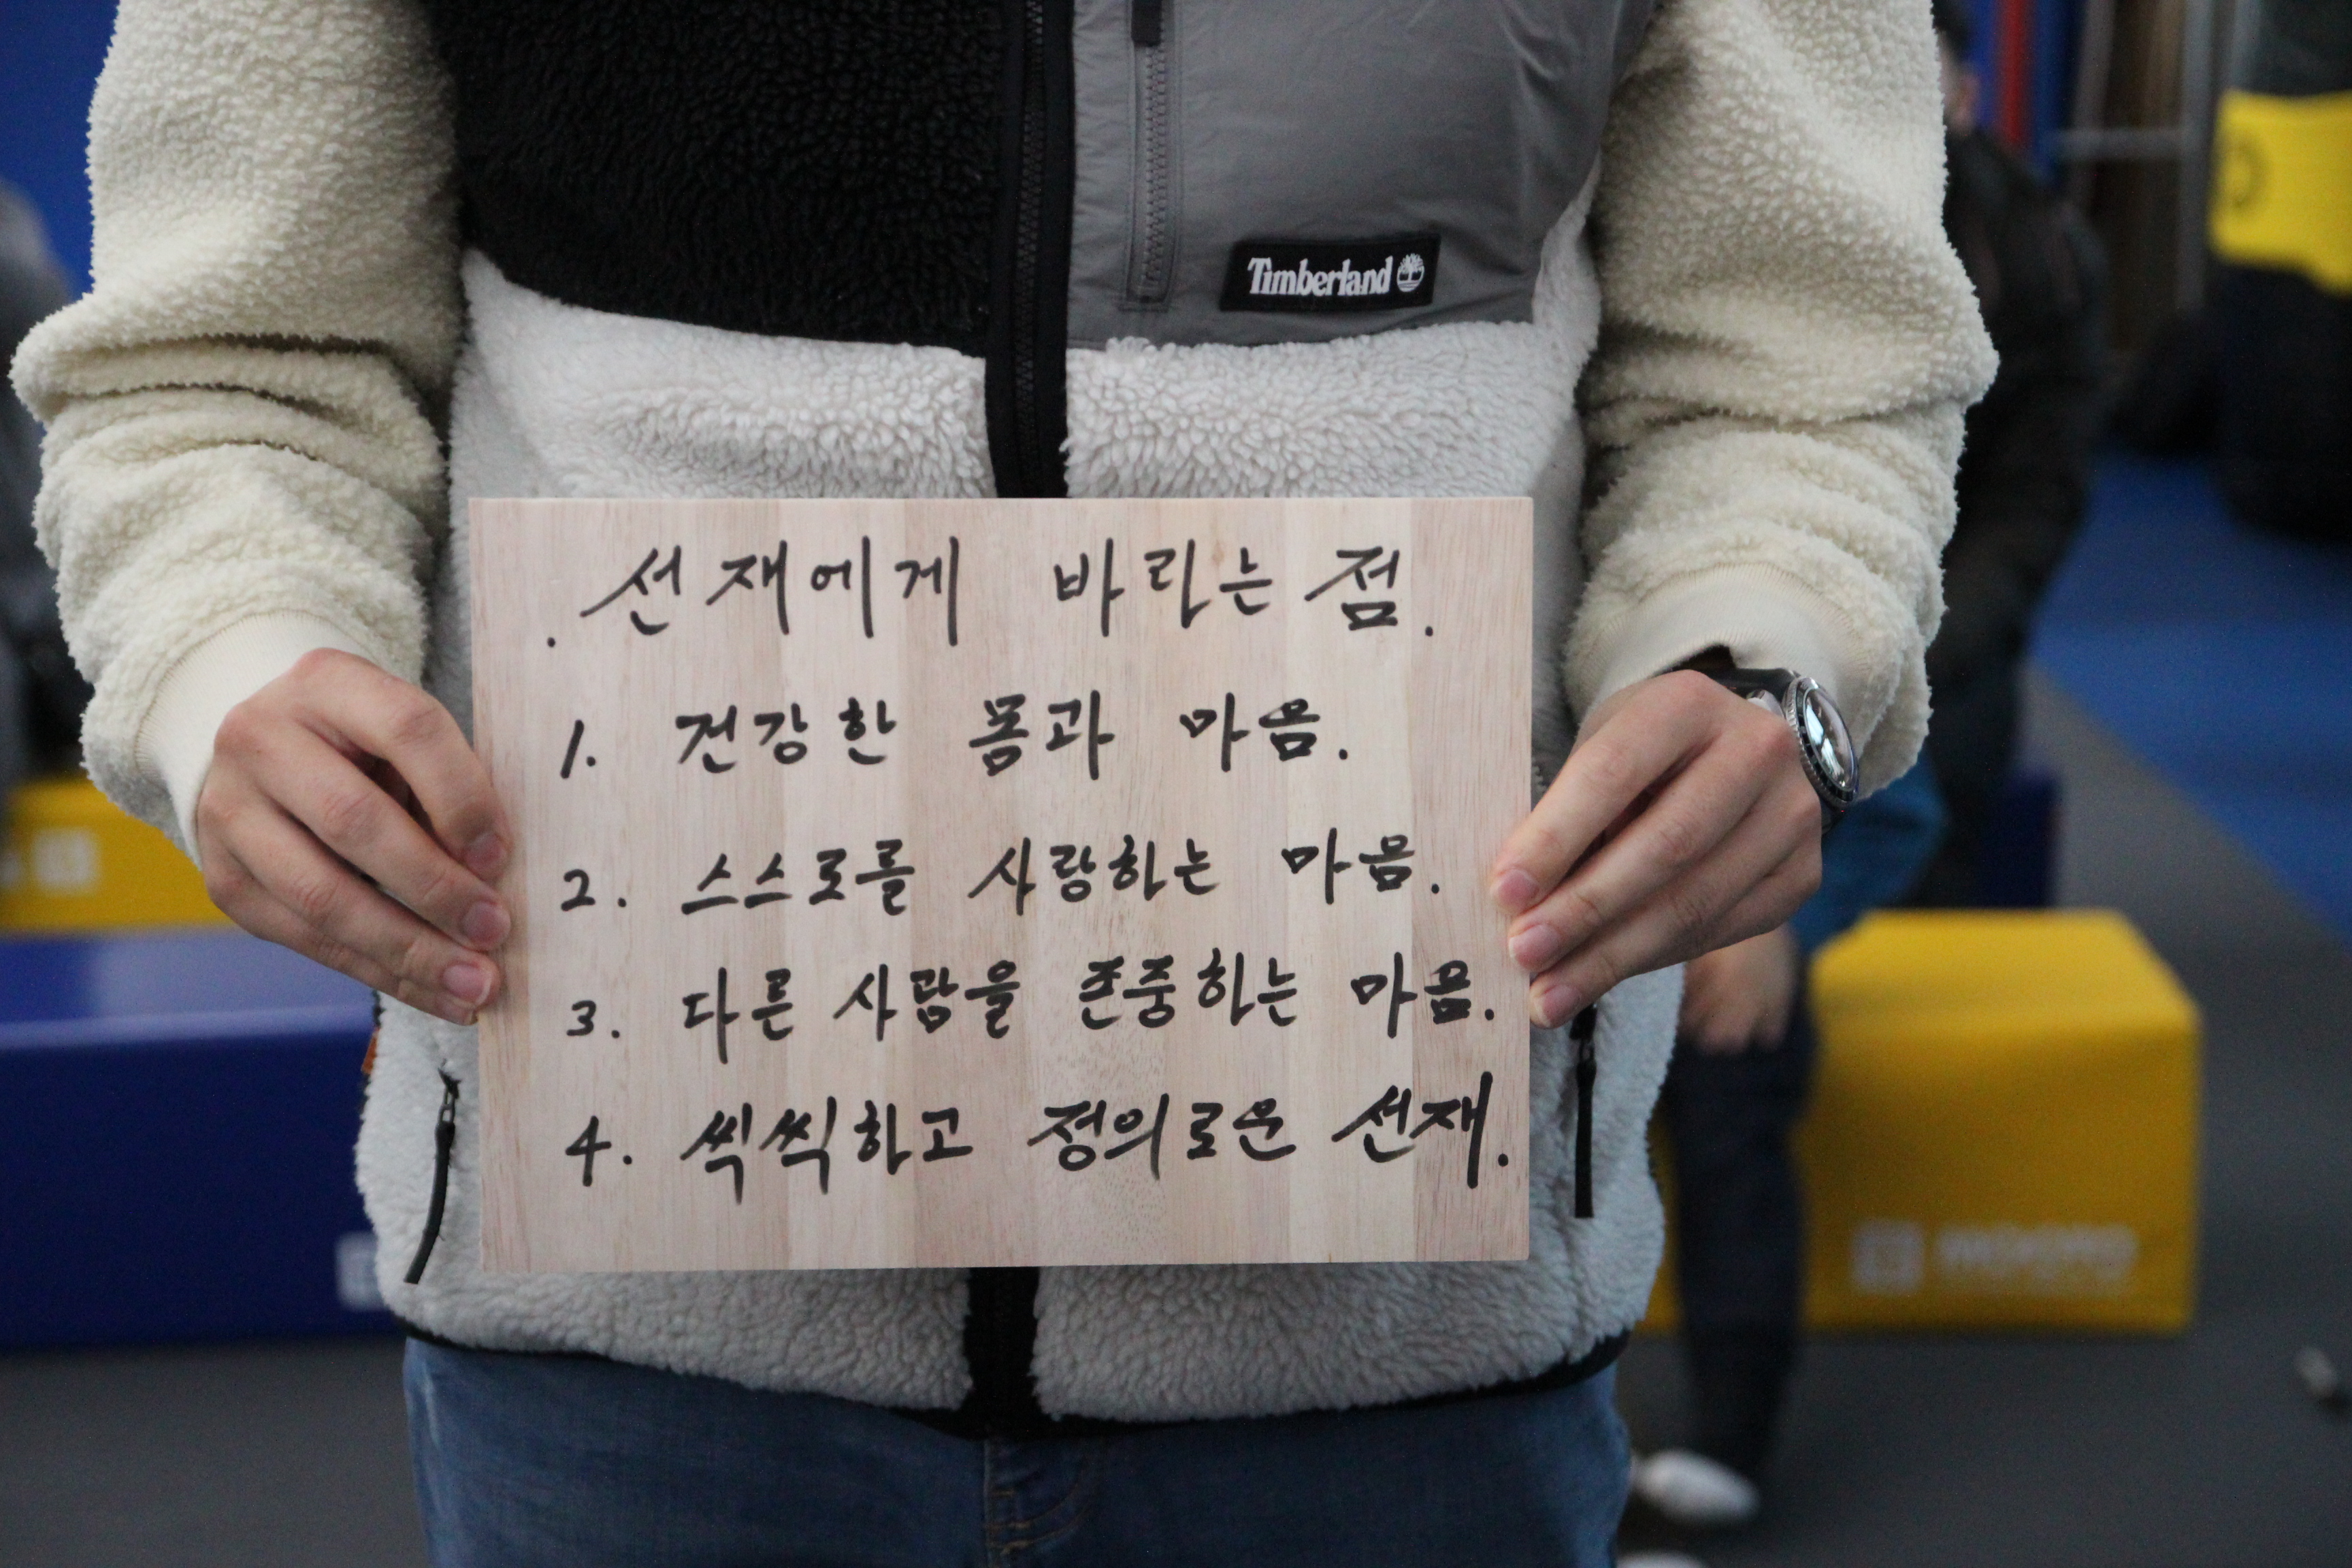 Timberland
. 선재에게 바라는 점.
1. 건강한 몸과 마음.
2. 스스로를 사랑하는 마음.
3. 다른 사람을 존중하는 마음.
4. 씩씩하고 정의로운 선재.